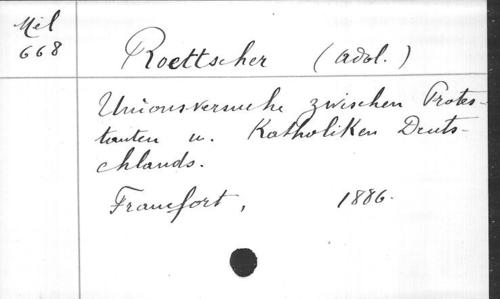 Mil
668
Roettscher (Adol.)
Unionsversuche zwischen Protes-
tanten u. Katholiken Deuts-
chlands.
Francfort, 1886.